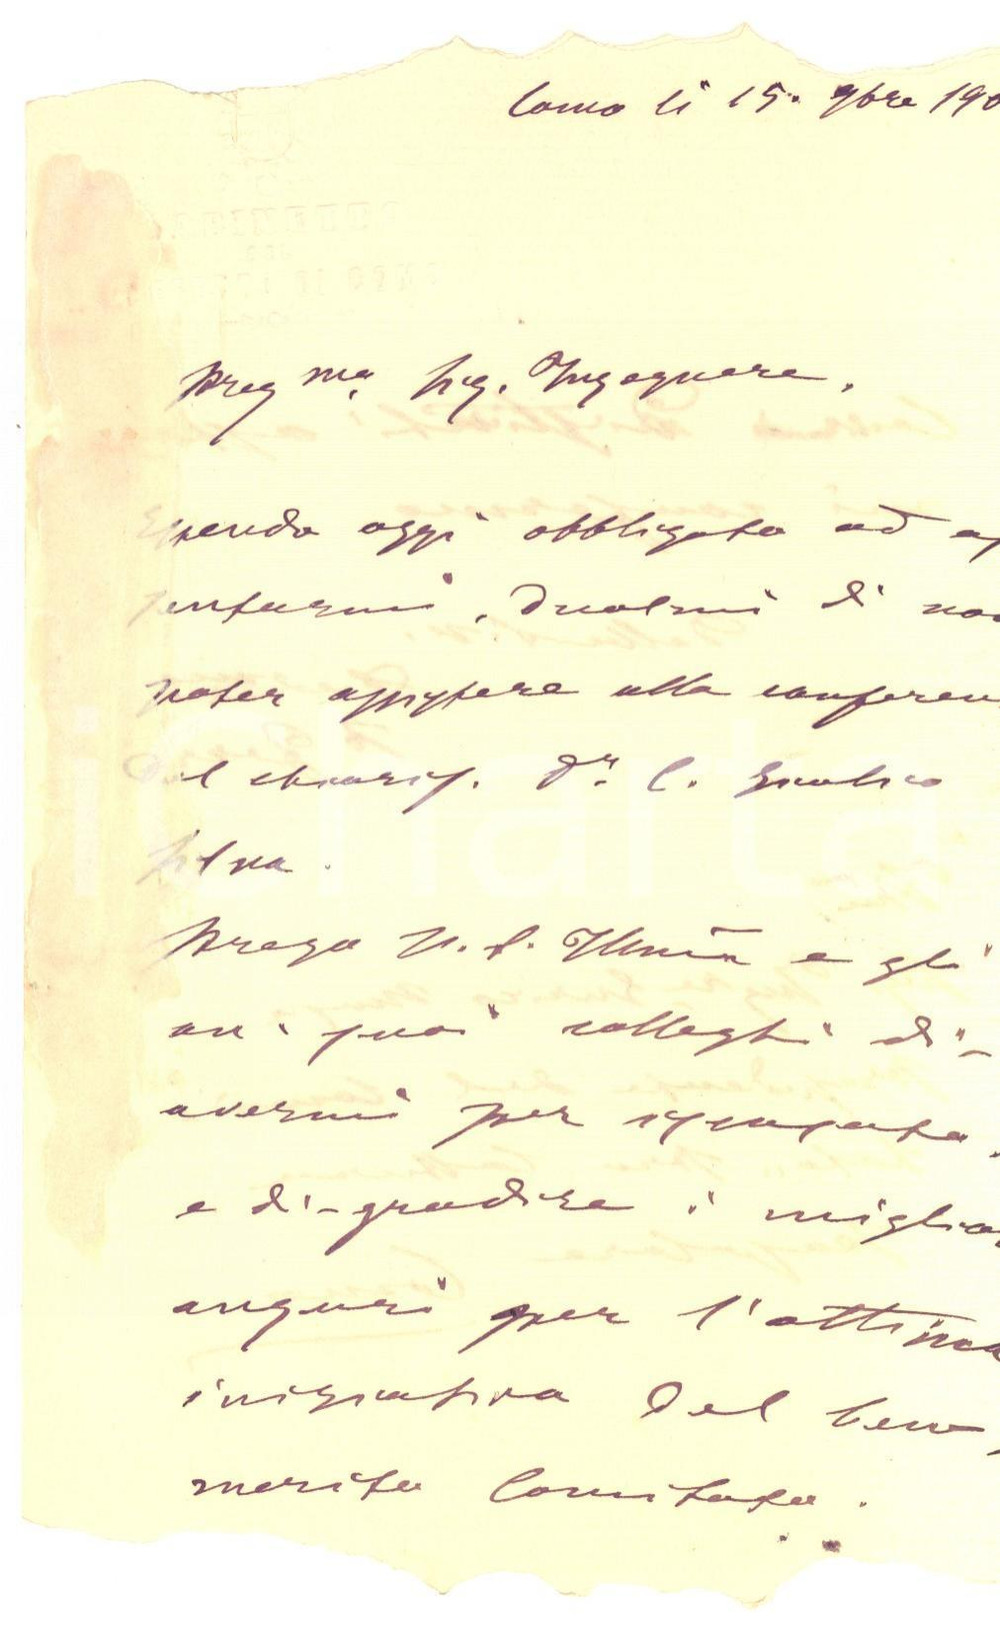 Como li 15. 9bre 190
Preg.ma Sig. Ingegnere.
Essendo oggi obbligato ad as
sentarmi, duolmi di non
poter assistere alla conferen
del chiaris. Dr. C. Giulio
Silva.
Prego V. S. Illma e gli
on. suoi colleghi di
avermi per iscusato,
e di gradire i miglior
auguri per l'ottima
iniziativa del bene
merito Comitato.
iCharta